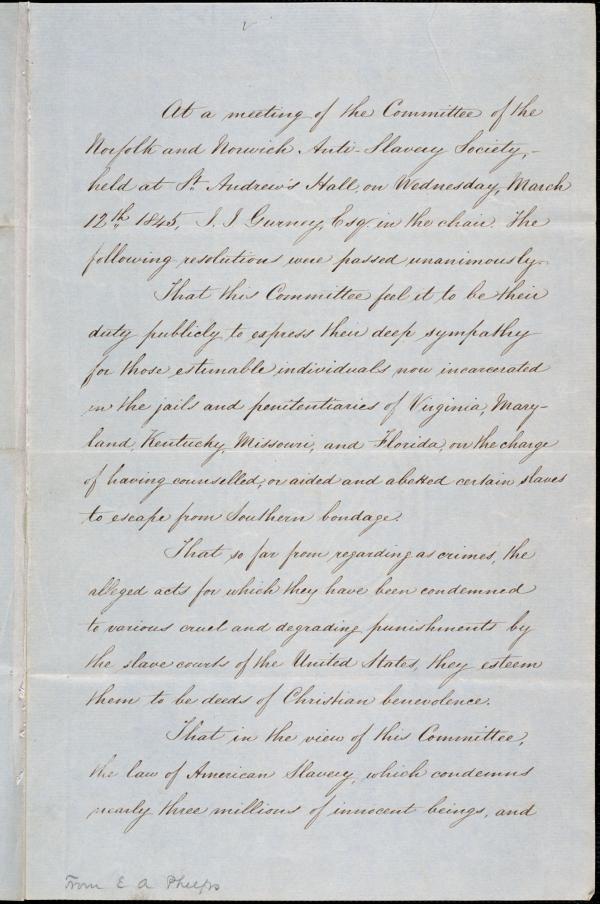 At a meeting of the Committee of the
Norfolk and Norwich Anti-Slavery Society,-
held at St. Andrew's Hall, on Wednesday, March
12th 1845, J. J. Gurney, Esq. in the chair. The
following resolutions were passed unanimously.
That this Committee feel it to be their
duty publicly to express their deep sympathy
for those estimable individuals now incarcerated
in the jails and penitentiaries of Virginia, Mary-
land, Kentucky, Missouri, and Florida, on the charge
of having counselled, or aided and abetted certain slaves
to escape from Southern bondage.
That so far from regarding as crimes, the
alleged acts for which they have been condemned
to various cruel and degrading punishments by
the slave courts of the United States, they esteem
them to be deeds of Christian benevolence.
That in the view of this Committee,
the law of American Slavery, which condemns
nearly three millions of innocent beings, and
From E A Phelps